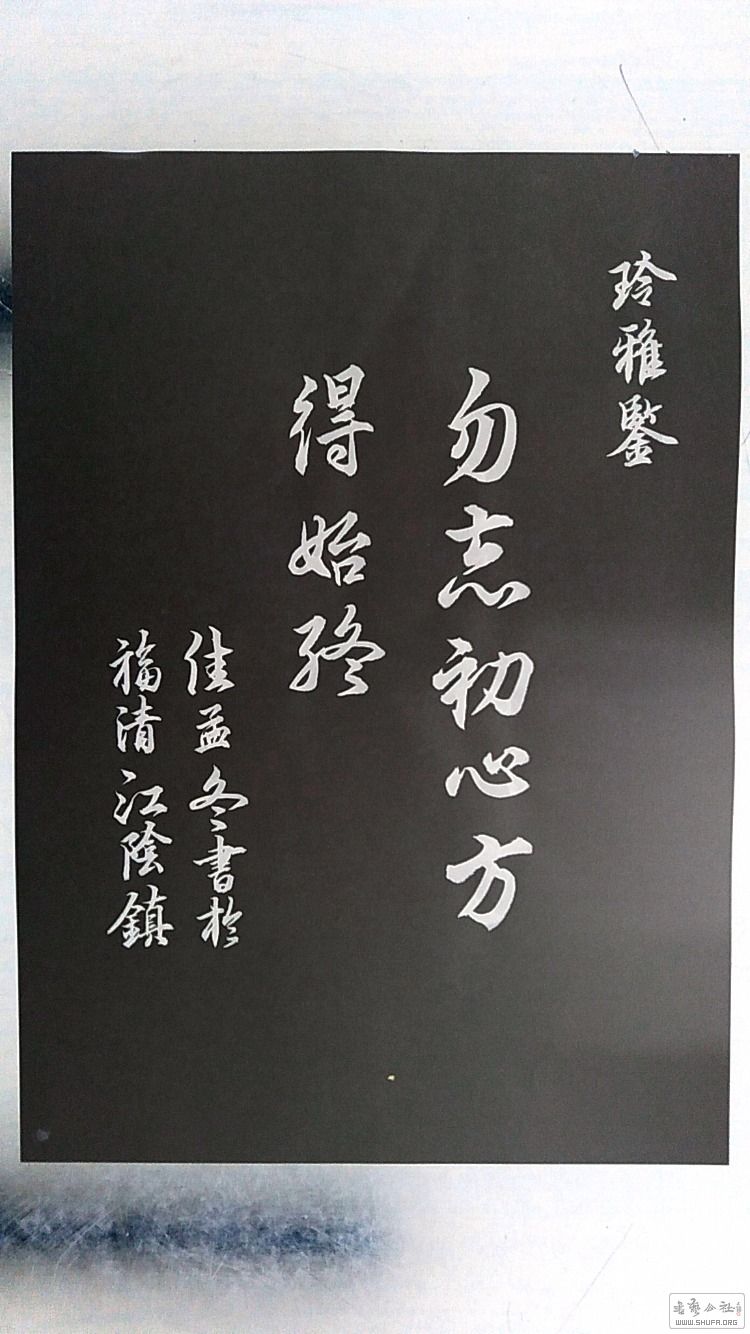 玲雅鑒
勿忘初心方
得始終
佳益冬書於
福清江陰鎮
书艺公社
WWW.SHUFA.ORG